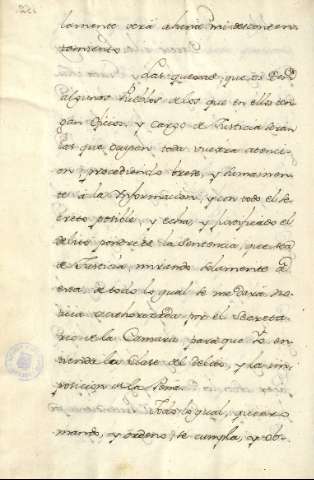 lamente verá ahuna mi descontem-
tamiento.
Las quexas, que os dén
algunos Pueblos de los que en ellos ten-
gan Oficios, y Cargo de Justicia seran
las que ocupen toda vuestra aten-
cion procediendo breve, y llanamen-
te á la Ynformacion, y con todo el Se-
creto posible, y echa, y justificado el
delito pondreis la Sentencia, que sea
de Justicia, mirando solamente á
esta, de todo lo qual se me dará no-
ticia por el Secreta-
rio de la Camara para que Yo en-
tienda la Clase del delito, y la im-
posicion de la Pena.
Todo lo qual, quiero
mando, y ordeno, se cumpla, y ob-